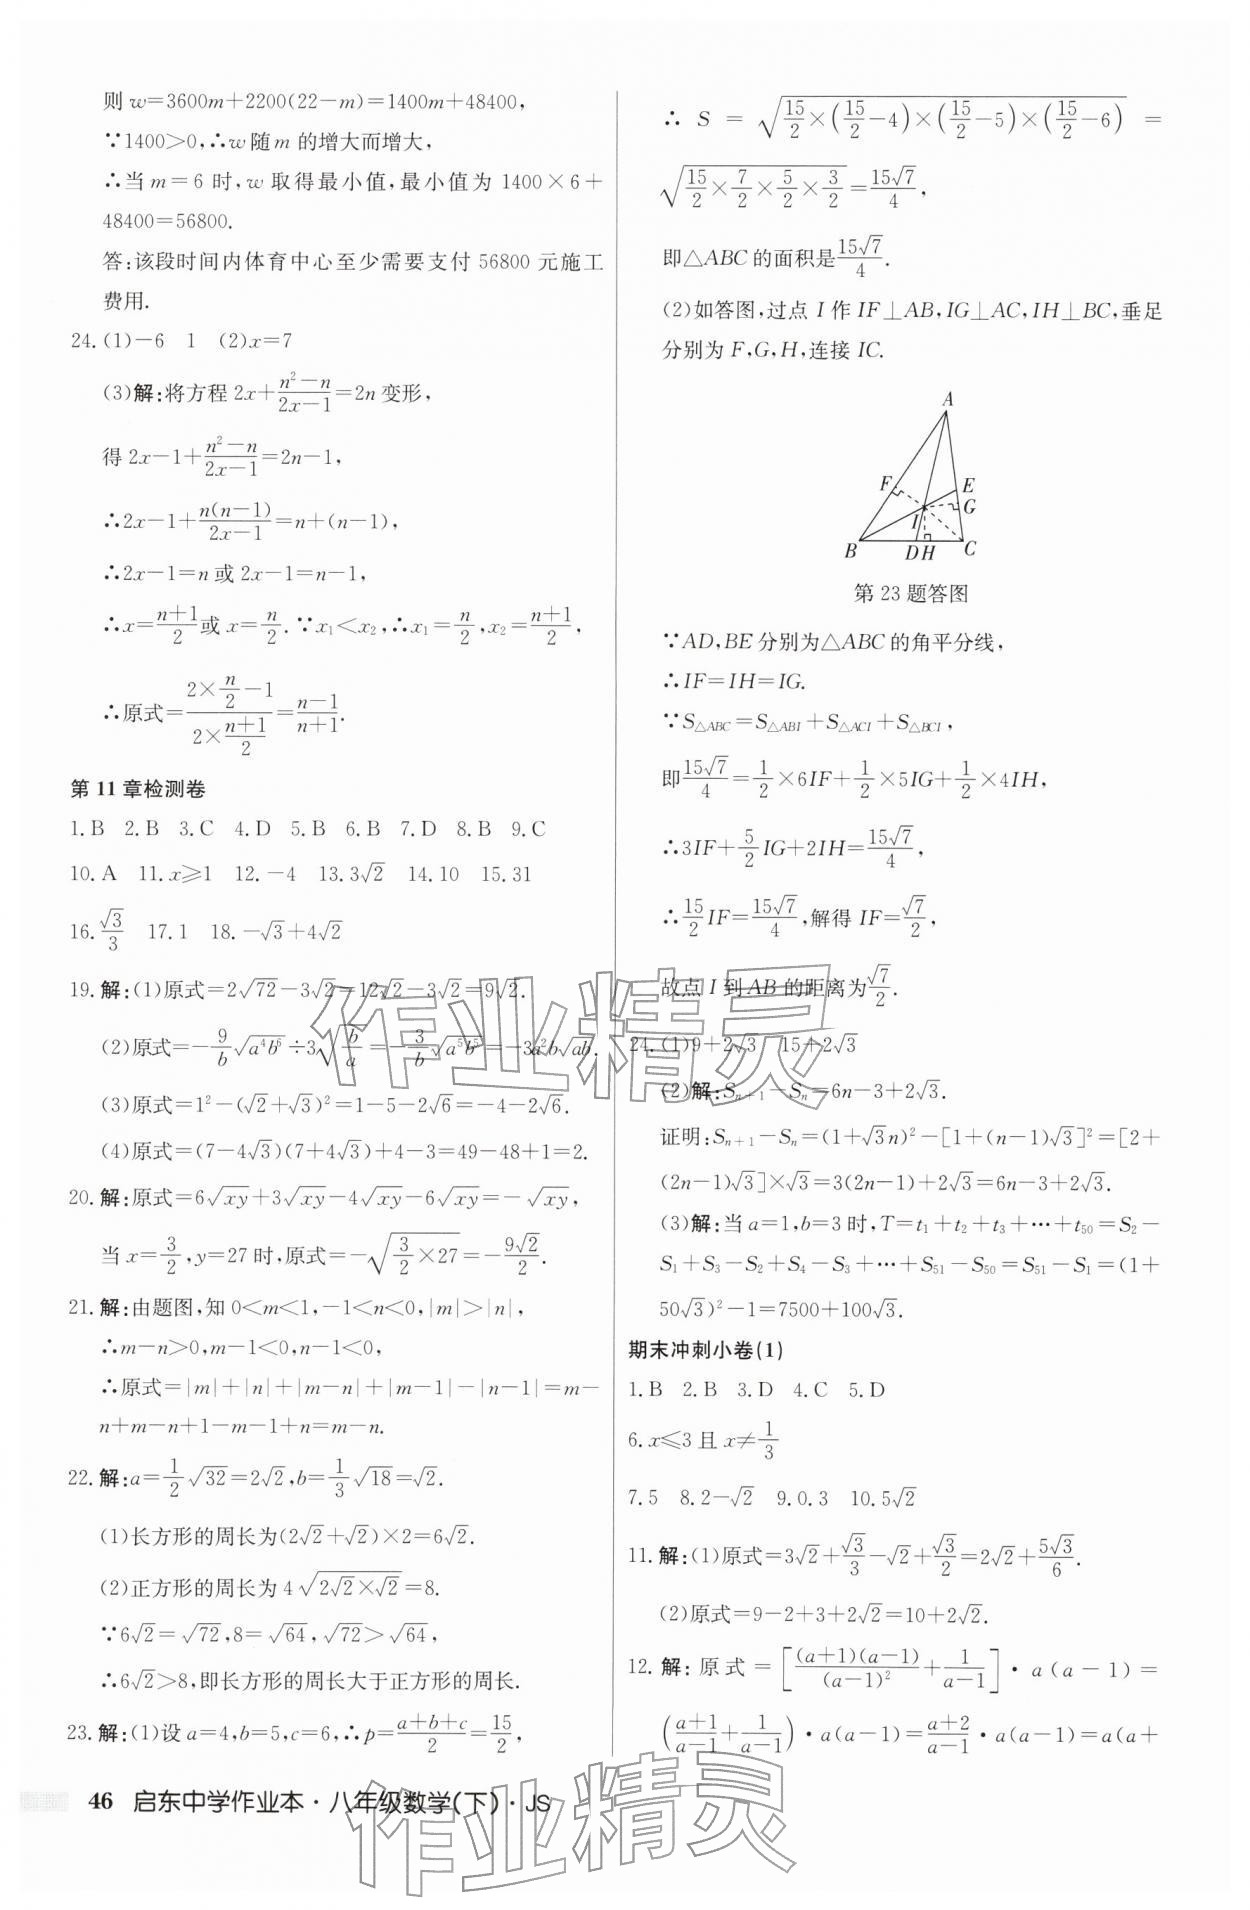 则 w=3600m+2200(22-m)=1400m+48400,
∵1400>0,∴w 随 m 的增大而增大,
∴当 m=6 时,w 取得最小值,最小值为 1400×6+
48400=56800.
答:该段时间内体育中心至少需要支付 56800 元施工
费用.
24.(1)-6 1 (2)x=7
(3)解:将方程 2x+\frac{n^2-n}{2x-1}=2n 变形,
得 2x-1+\frac{n^2-n}{2x-1}=2n-1,
∴2x-1+\frac{n(n-1)}{2x-1}=n+(n-1),
∴2x-1=n 或 2x-1=n-1,
∴x=\frac{n+1}{2}或 x=\frac{n}{2}.∵x₁<x₂,∴x₁=\frac{n}{2},x₂=\frac{n+1}{2},
∴原式=\frac{2×\frac{n}{2}-1}{2×\frac{n+1}{2}}=\frac{n-1}{n+1}.
第 11 章检测卷
1.B 2.B 3.C 4.D 5.B 6.B 7.D 8.B 9.C
10.A 11.x⩾1 12.-4 13.3√2 14.10 15.31
16.\frac{√3}{3} 17.1 18.-√3+4√2
19.解:(1)原式=2√72-3√2=12√2-3√2=9√2.
(2)原式=-\frac{9}{b}√(a⁴b⁶)÷3√(\frac{b}{a})=-\frac{3}{b}√(a⁵b⁵)=-3a²b√(ab).
(3)原式=1²-(√2+√3)²=1-5-2√6=-4-2√6.
(4)原式=(7-4√3)(7+4√3)+4-3=49-48+1=2.
20.解:原式=6√(xy)+3√(xy)-4√(xy)-6√(xy)=-√(xy),
当 x=\frac{3}{2},y=27 时,原式=-√(\frac{3}{2}×27)=-\frac{9√2}{2}.
21.解:由题图,知 0<m<1,-1<n<0,|m|>|n|,
∴m-n>0,m-1<0,n-1<0,
∴原式=|m|+|n|+|m-n|+|m-1|-|n-1|=m-
n+m-n+1-m-1+n=m-n.
22.解:a=\frac{1}{2}√32=2√2,b=\frac{1}{3}√18=√2.
(1)长方形的周长为(2√2+√2)×2=6√2.
(2)正方形的周长为 4√(2√2×√2)=8.
∵6√2=√72,8=√64,√72>√64,
∴6√2>8,即长方形的周长大于正方形的周长.
23.解:(1)设 a=4,b=5,c=6,∴p=\frac{a+b+c}{2}=\frac{15}{2},
∴ S = √(\frac{15}{2}×(\frac{15}{2}-4)×(\frac{15}{2}-5)×(\frac{15}{2}-6)) =
√(\frac{15}{2}×\frac{7}{2}×\frac{5}{2}×\frac{3}{2})=\frac{15√7}{4},
即△ABC 的面积是\frac{15√7}{4}.
(2)如答图,过点 I 作 IF⊥AB,IG⊥AC,IH⊥BC,垂足
分别为 F,G,H,连接 IC.
A
F
E
G
I
B
D
H
C
第 23 题答图
∵AD,BE 分别为△ABC 的角平分线,
∴IF=IH=IG.
∵S△ABC=S△ABI+S△ACI+S△BCI,
即\frac{15√7}{4}=\frac{1}{2}×6IF+\frac{1}{2}×5IG+\frac{1}{2}×4IH,
∴3IF+\frac{5}{2}IG+2IH=\frac{15√7}{4},
∴\frac{15}{2}IF=\frac{15√7}{4},解得 IF=\frac{√7}{2},
故点 I 到 AB 的距离为\frac{√7}{2}.
24.(1)9+2√3 15+2√3
(2)解:Sₙ₊₁-Sₙ=6n-3+2√3.
证明:Sₙ₊₁-Sₙ=(1+√3n)²-[1+(n-1)√3]²=[2+
(2n-1)√3]×√3=3(2n-1)+2√3=6n-3+2√3.
(3)解:当 a=1,b=3 时,T=t₁+t₂+t₃+⋯+t₅₀=S₂-
S₁+S₃-S₂+S₄-S₃+⋯+S₅₁-S₅₀=S₅₁-S₁=(1+
50√3)²-1=7500+100√3.
期末冲刺小卷(1)
1.B 2.B 3.D 4.C 5.D
6.x⩽3 且 x≠\frac{1}{3}
7.5 8.2-√2 9.0.3 10.5√2
11.解:(1)原式=3√2+\frac{√3}{3}-√2+\frac{√3}{2}=2√2+\frac{5√3}{6}.
(2)原式=9-2+3+2√2=10+2√2.
12.解:原式=[\frac{(a+1)(a-1)}{(a-1)²}+\frac{1}{a-1}]·a(a-1)=
(\frac{a+1}{a-1}+\frac{1}{a-1})·a(a-1)=\frac{a+2}{a-1}·a(a-1)=a(a+
46 启东中学作业本·八年级数学(下)·JS
作业精灵
作业精灵